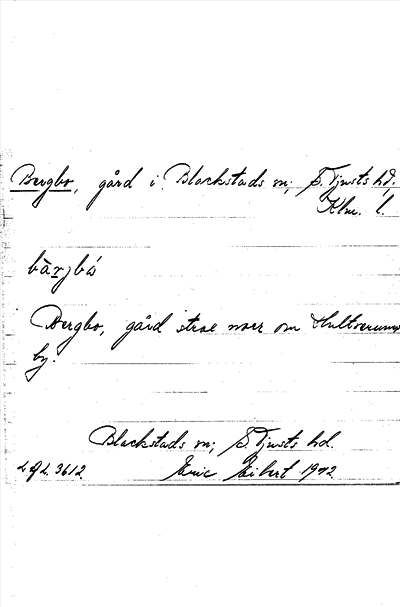 Bergbo, gård i Blackstads sn; S. Tjusts hd;
Klm. l.
bàrjbó
Bergbo, gård strax norr om Hultserums
by.
Blackstads sn; S. Tjusts hd.
L.A.L. 3612. Eric Eibert 1942